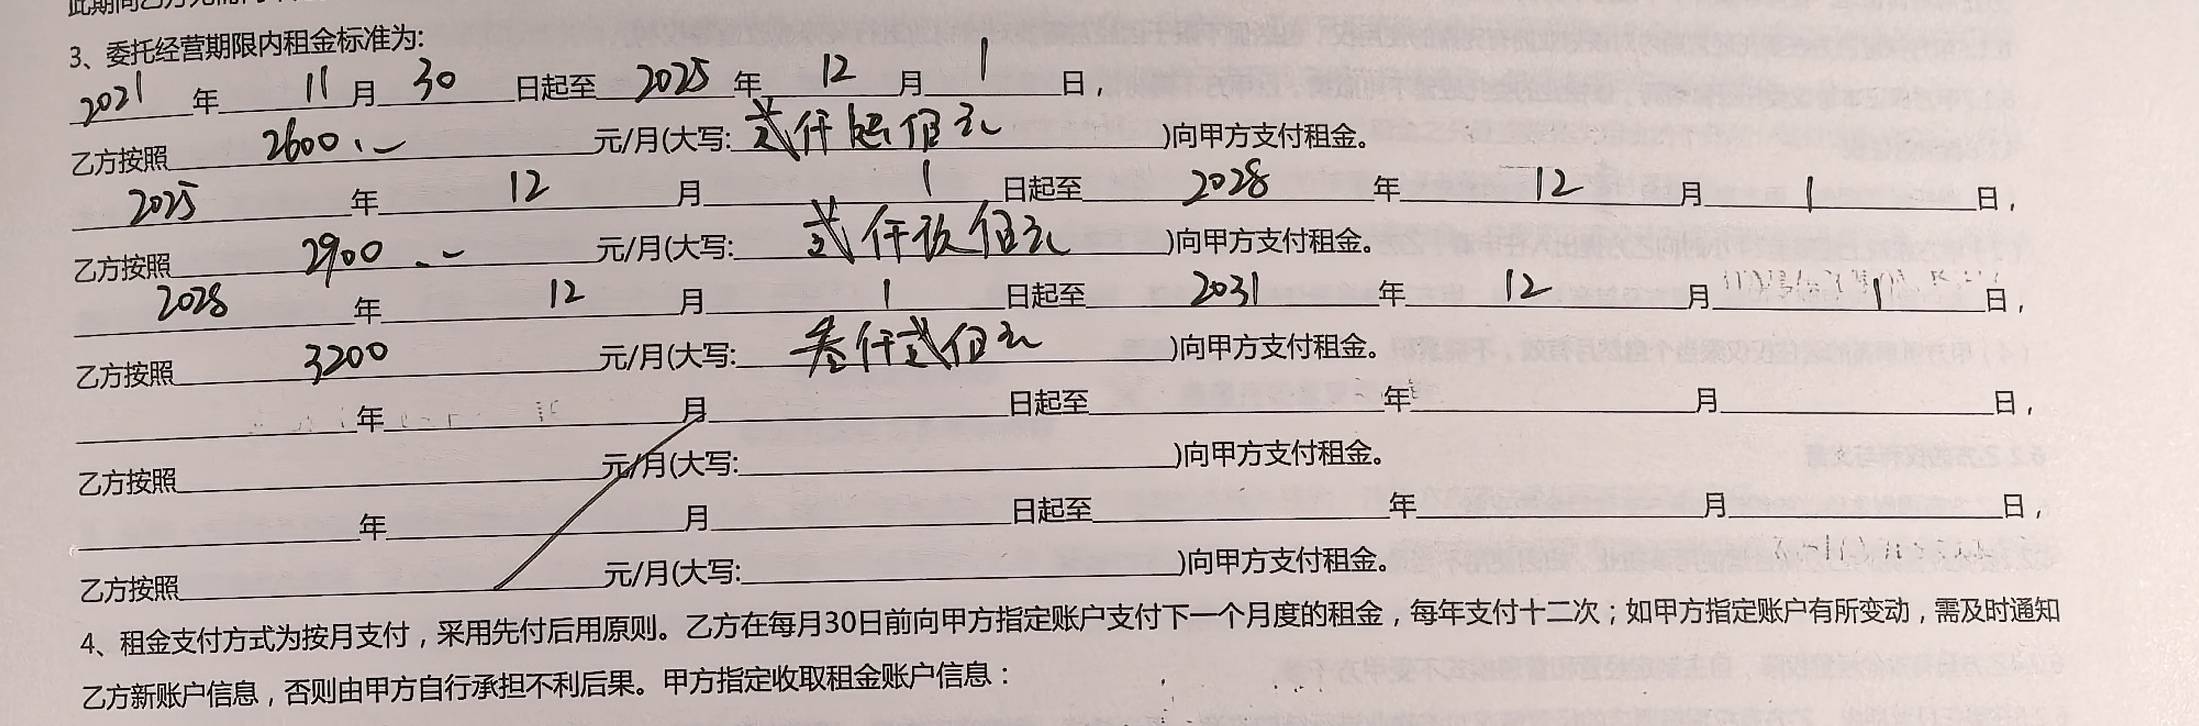 此期间乙方
3、委托经营期限内租金标准为:
2021年11月30日起至2025年12月1日，
乙方按照2600.-元/月(大写:贰仟陆佰元)向甲方支付租金。
2025年12月1日起至2028年12月1日，
乙方按照2900.-元/月(大写:贰仟玖佰元)向甲方支付租金。
2028年12月1日起至2031年12月1日，
乙方按照3200元/月(大写:叁仟贰佰元)向甲方支付租金。
年 月 日起至 年 月 日，
乙方按照 元/月(大写: )向甲方支付租金。
年 月 日起至 年 月 日，
乙方按照 元/月(大写: )向甲方支付租金。
4、租金支付方式为按月支付，采用先付后用原则。乙方在每月30日前向甲方指定账户支付下一个月度的租金，每年支付十二次；如甲方指定账户有所变动，需及时通知
乙方新账户信息，否则由甲方自行承担不利后果。甲方指定收取租金账户信息：